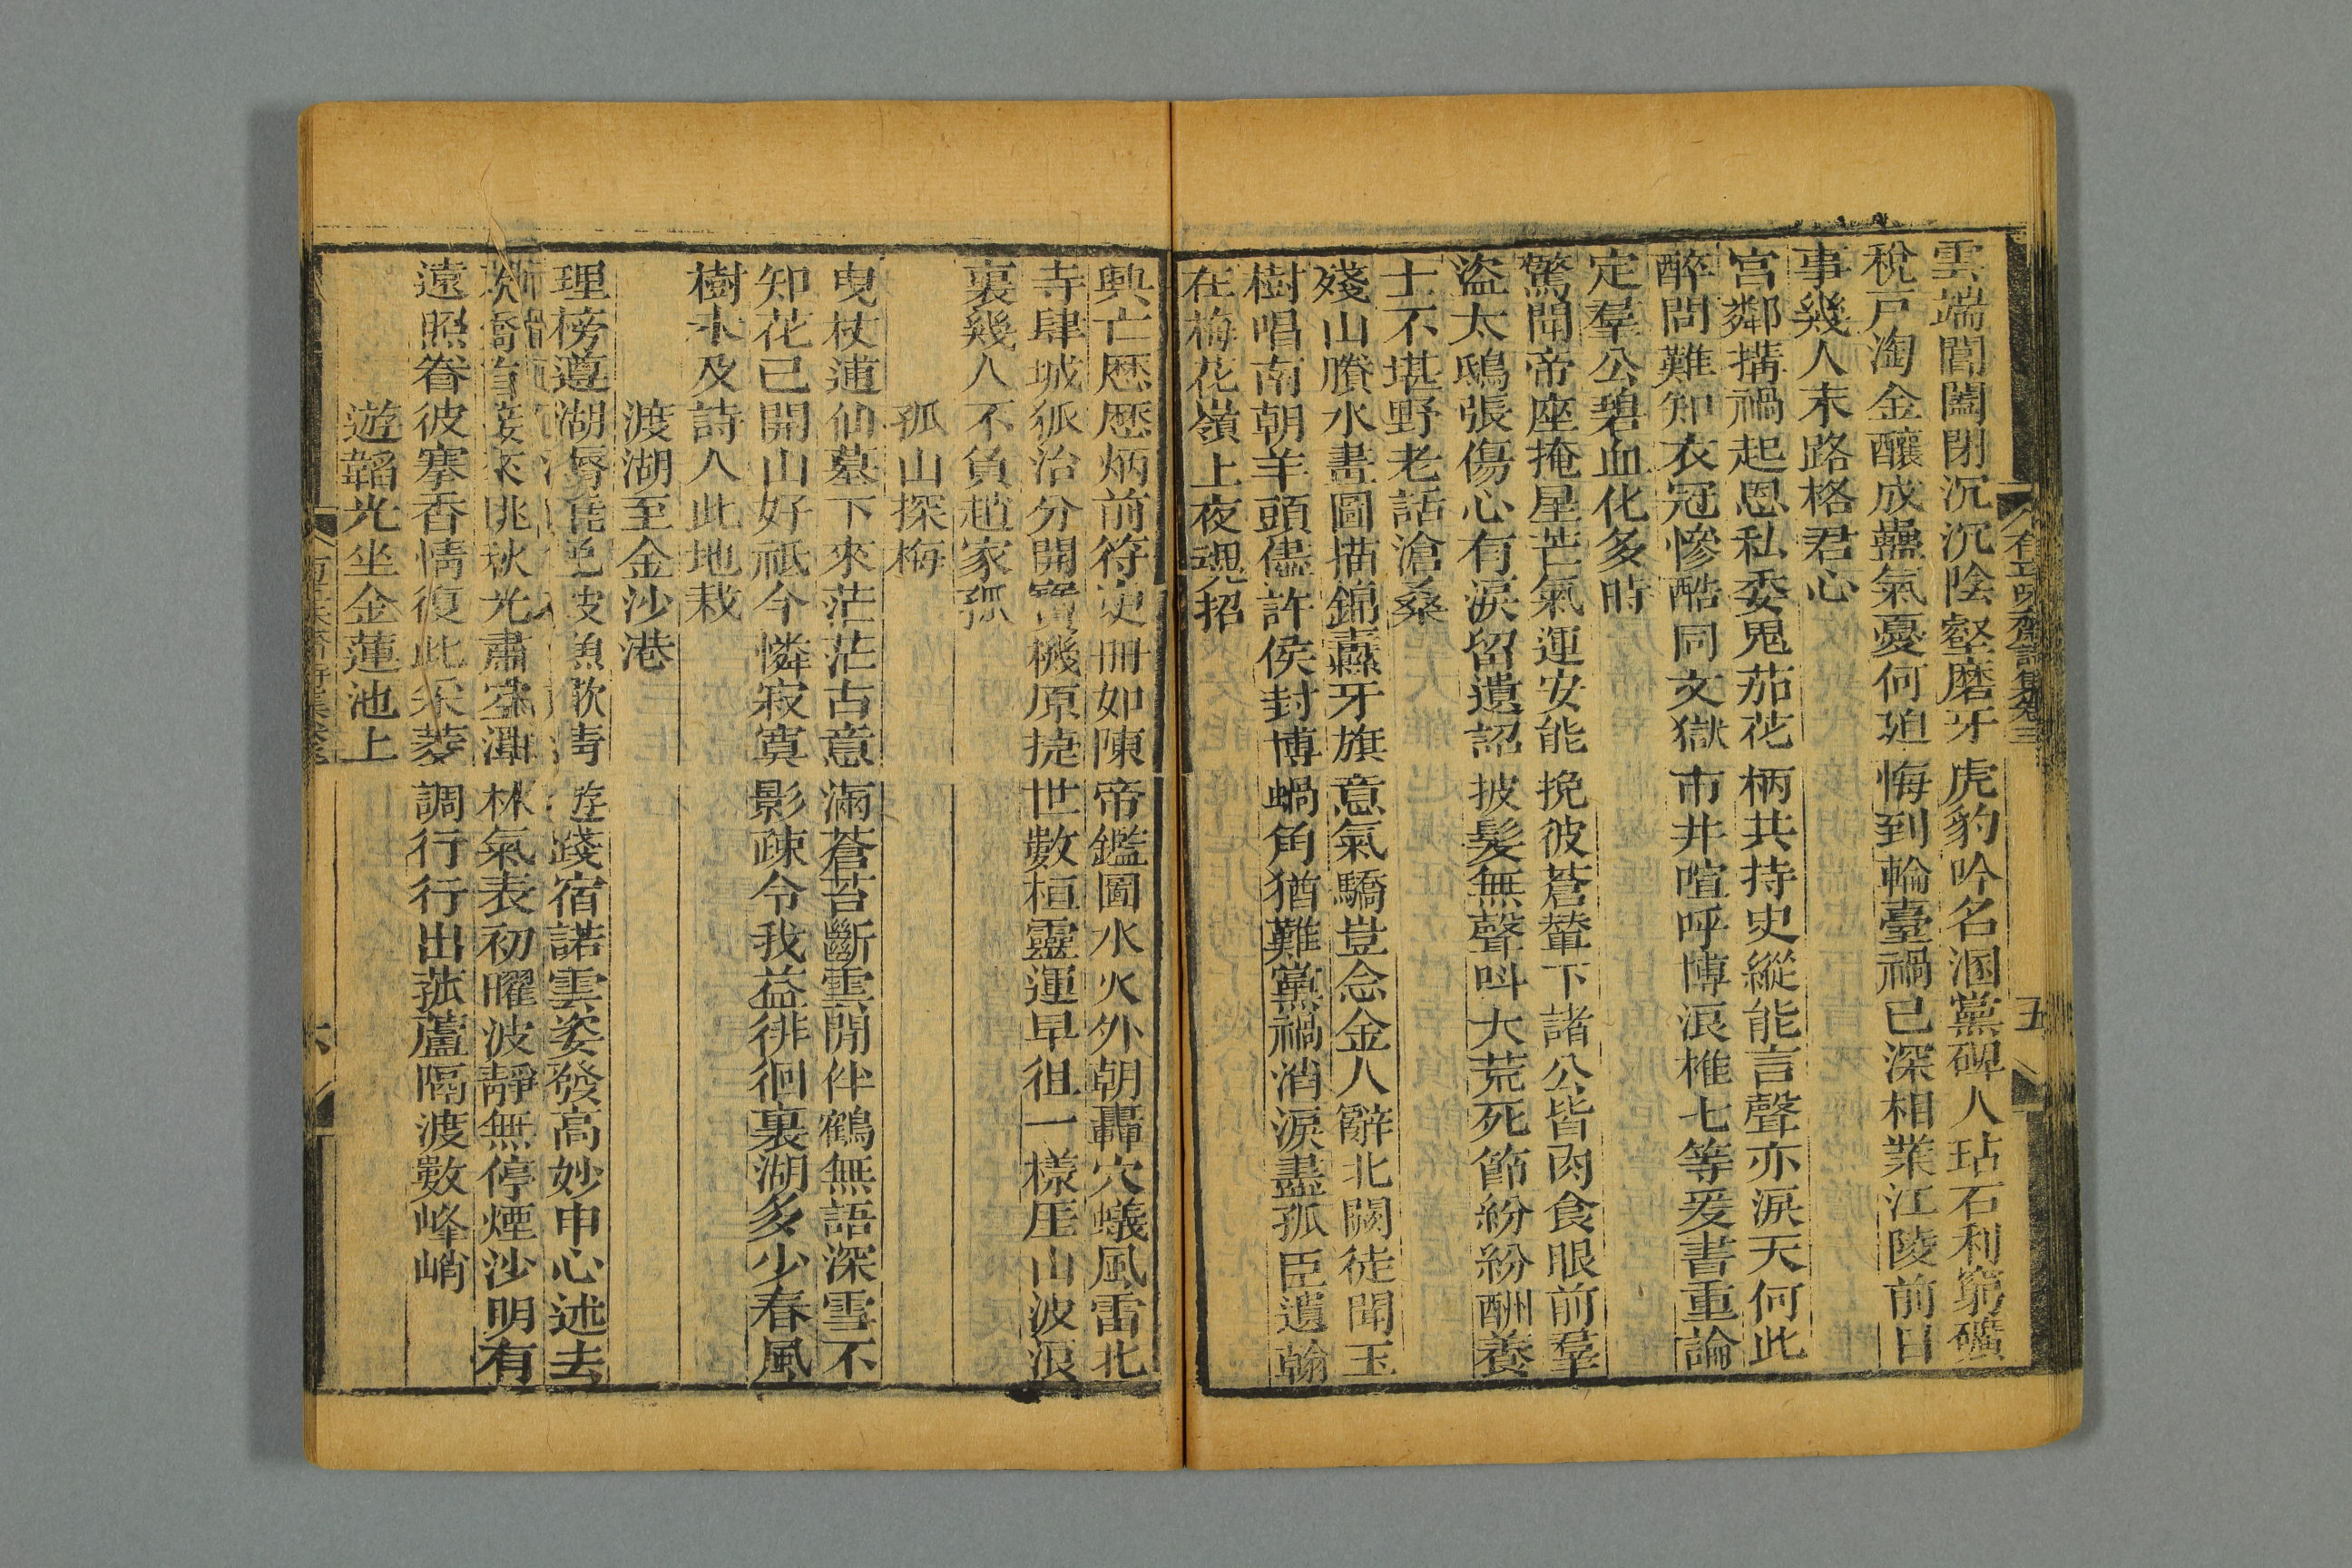 雲端閶闔閉沉沉陰壑磨牙虎豹吟名溷黨碑人玷石利窮礦
稅戸淘金釀成蠱氣憂何廹悔到輪臺禍已深相業江陵前日
事幾人末路格君心
宮鄰搆禍起恩私委鬼茄花柄共持史縱能言聲亦淚天何此
醉問難知衣冠慘酷同文獄市井喧呼博浪椎七等爰書重論
定羣公碧血化多時
驚聞帝座掩星芒氣運安能挽彼蒼輦下諸公皆肉食眼前羣
盜太鴟張傷心有淚留遺詔披髮無聲叫大荒死節紛紛酬養
士不堪野老話滄桑
殘山賸水畫圖描錦纛牙旗意氣驕豈念金人辭北闕徒聞玉
樹唱南朝羊頭儘許侯封博蝸角猶難黨禍消淚盡孤臣遺翰
在梅花嶺上夜魂招
五
興亡歷歷炳前符史冊如陳帝鑑圖水火外朝轟穴蟻風雷北
寺肆城狐治分開寶機原捷世數桓靈運早徂一樣厓山波浪
裏幾人不負趙家孤
孤山探梅
曳杖逋仙墓下來茫茫古意滿蒼苔斷雲閒伴鶴無語深雪不
知花已開山好祗今憐寂寞影疎令我益徘徊裏湖多少春風
樹未及詩人此地栽
渡湖至金沙港
理榜遵湖漘魚歌青踐宿諾雲姿發高妙申心述去
來眺秋光肅林氣表初曜波靜無停煙沙明有
遠照眷彼搴香情復此采菱調行行出菰蘆隔渡數峰峭
遊韜光坐金蓮池上
六